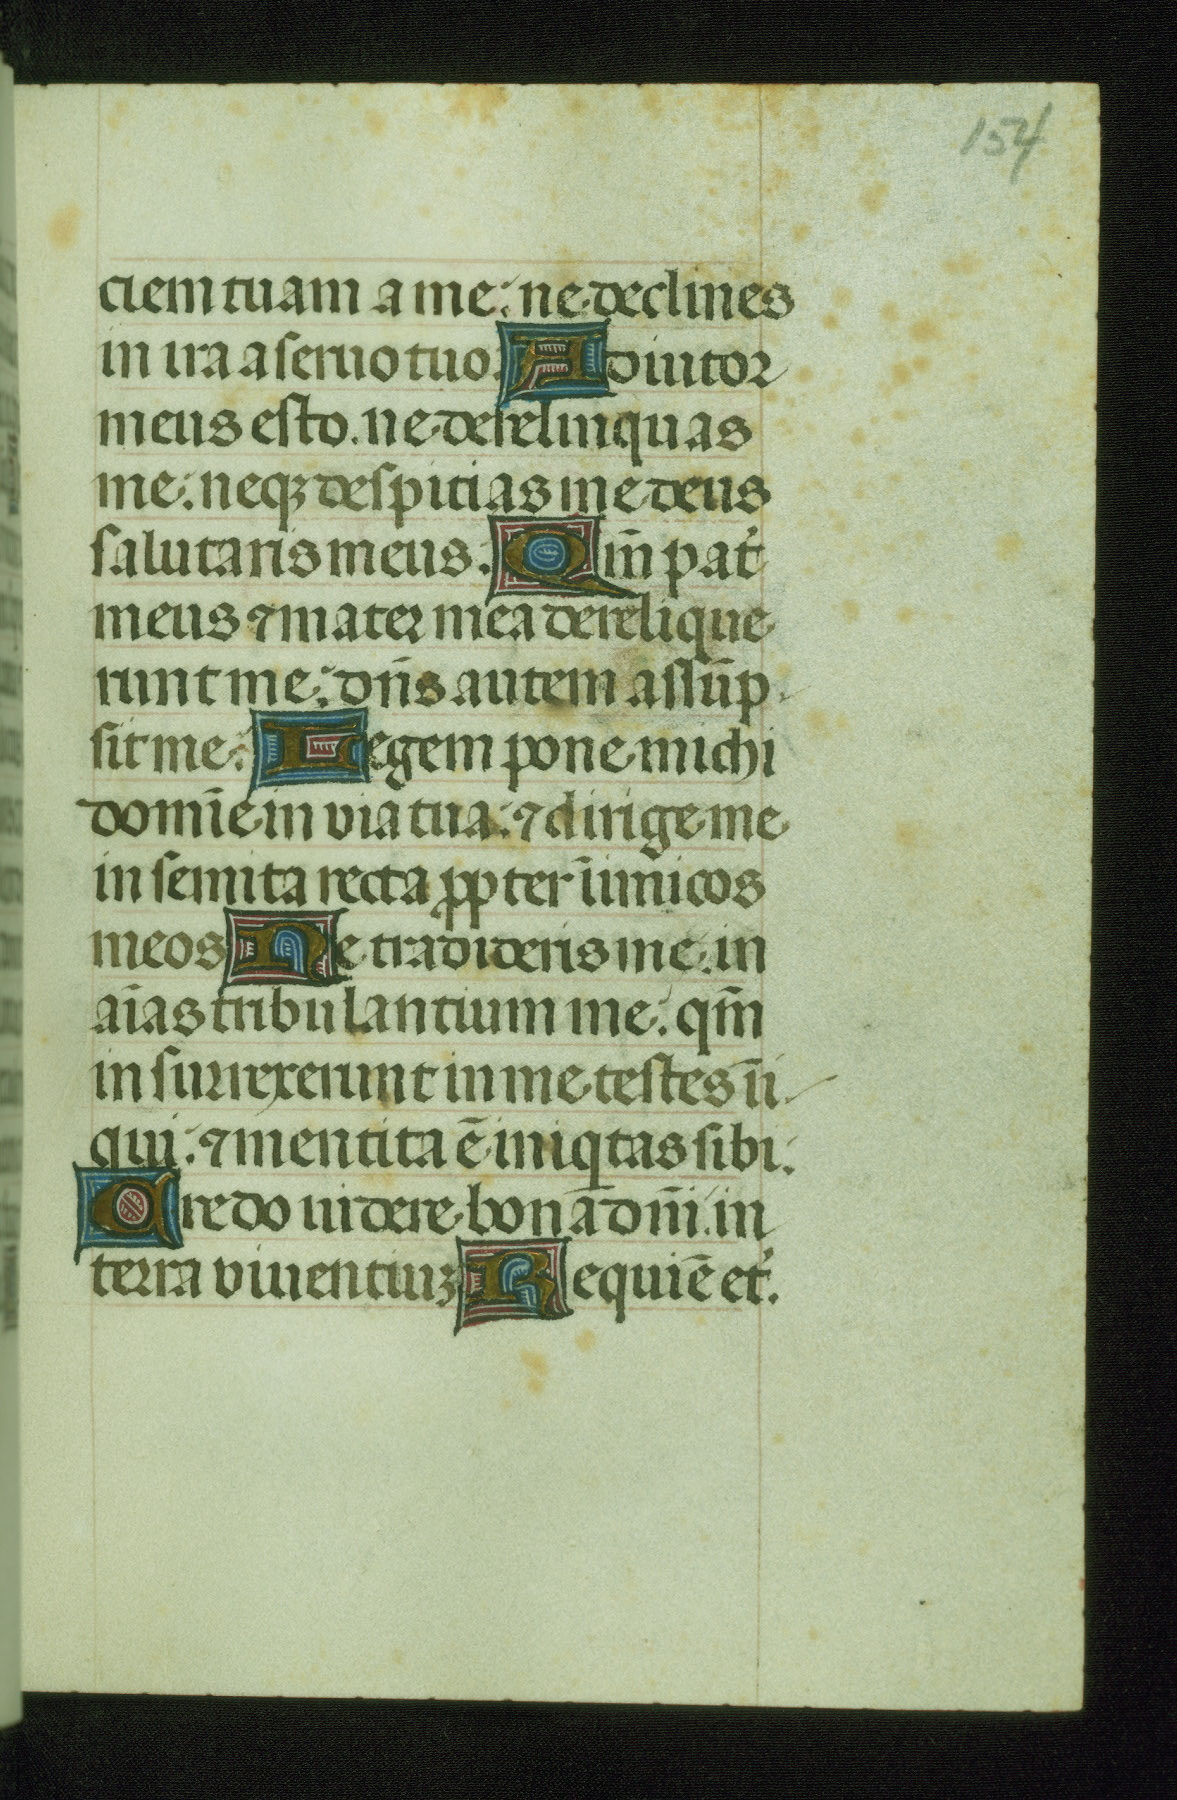 154
ciem tuam a me: ne declines
in ira a seruo tuo. Adiutor
meus esto. ne derelinquas
me: neqꝫ despicias me deus
salutaris meus. Qm̄ pat᷑
meus ⁊ mater mea derelique
runt me: dn̄s autem assūp
sit me. Legem pone michi
domīe in via tua: ⁊ dirige me
in semita recta ꝓpter īimicos
meos Ne tradideris me in
aīas tribulantium me: qm̄
insurrexerunt in me testes īi
qui: ⁊ mentita ē iniqtas sibi.
Credo uidere bonā dn̄i: in
terra viuentiuꝫ Requiē et᷑.